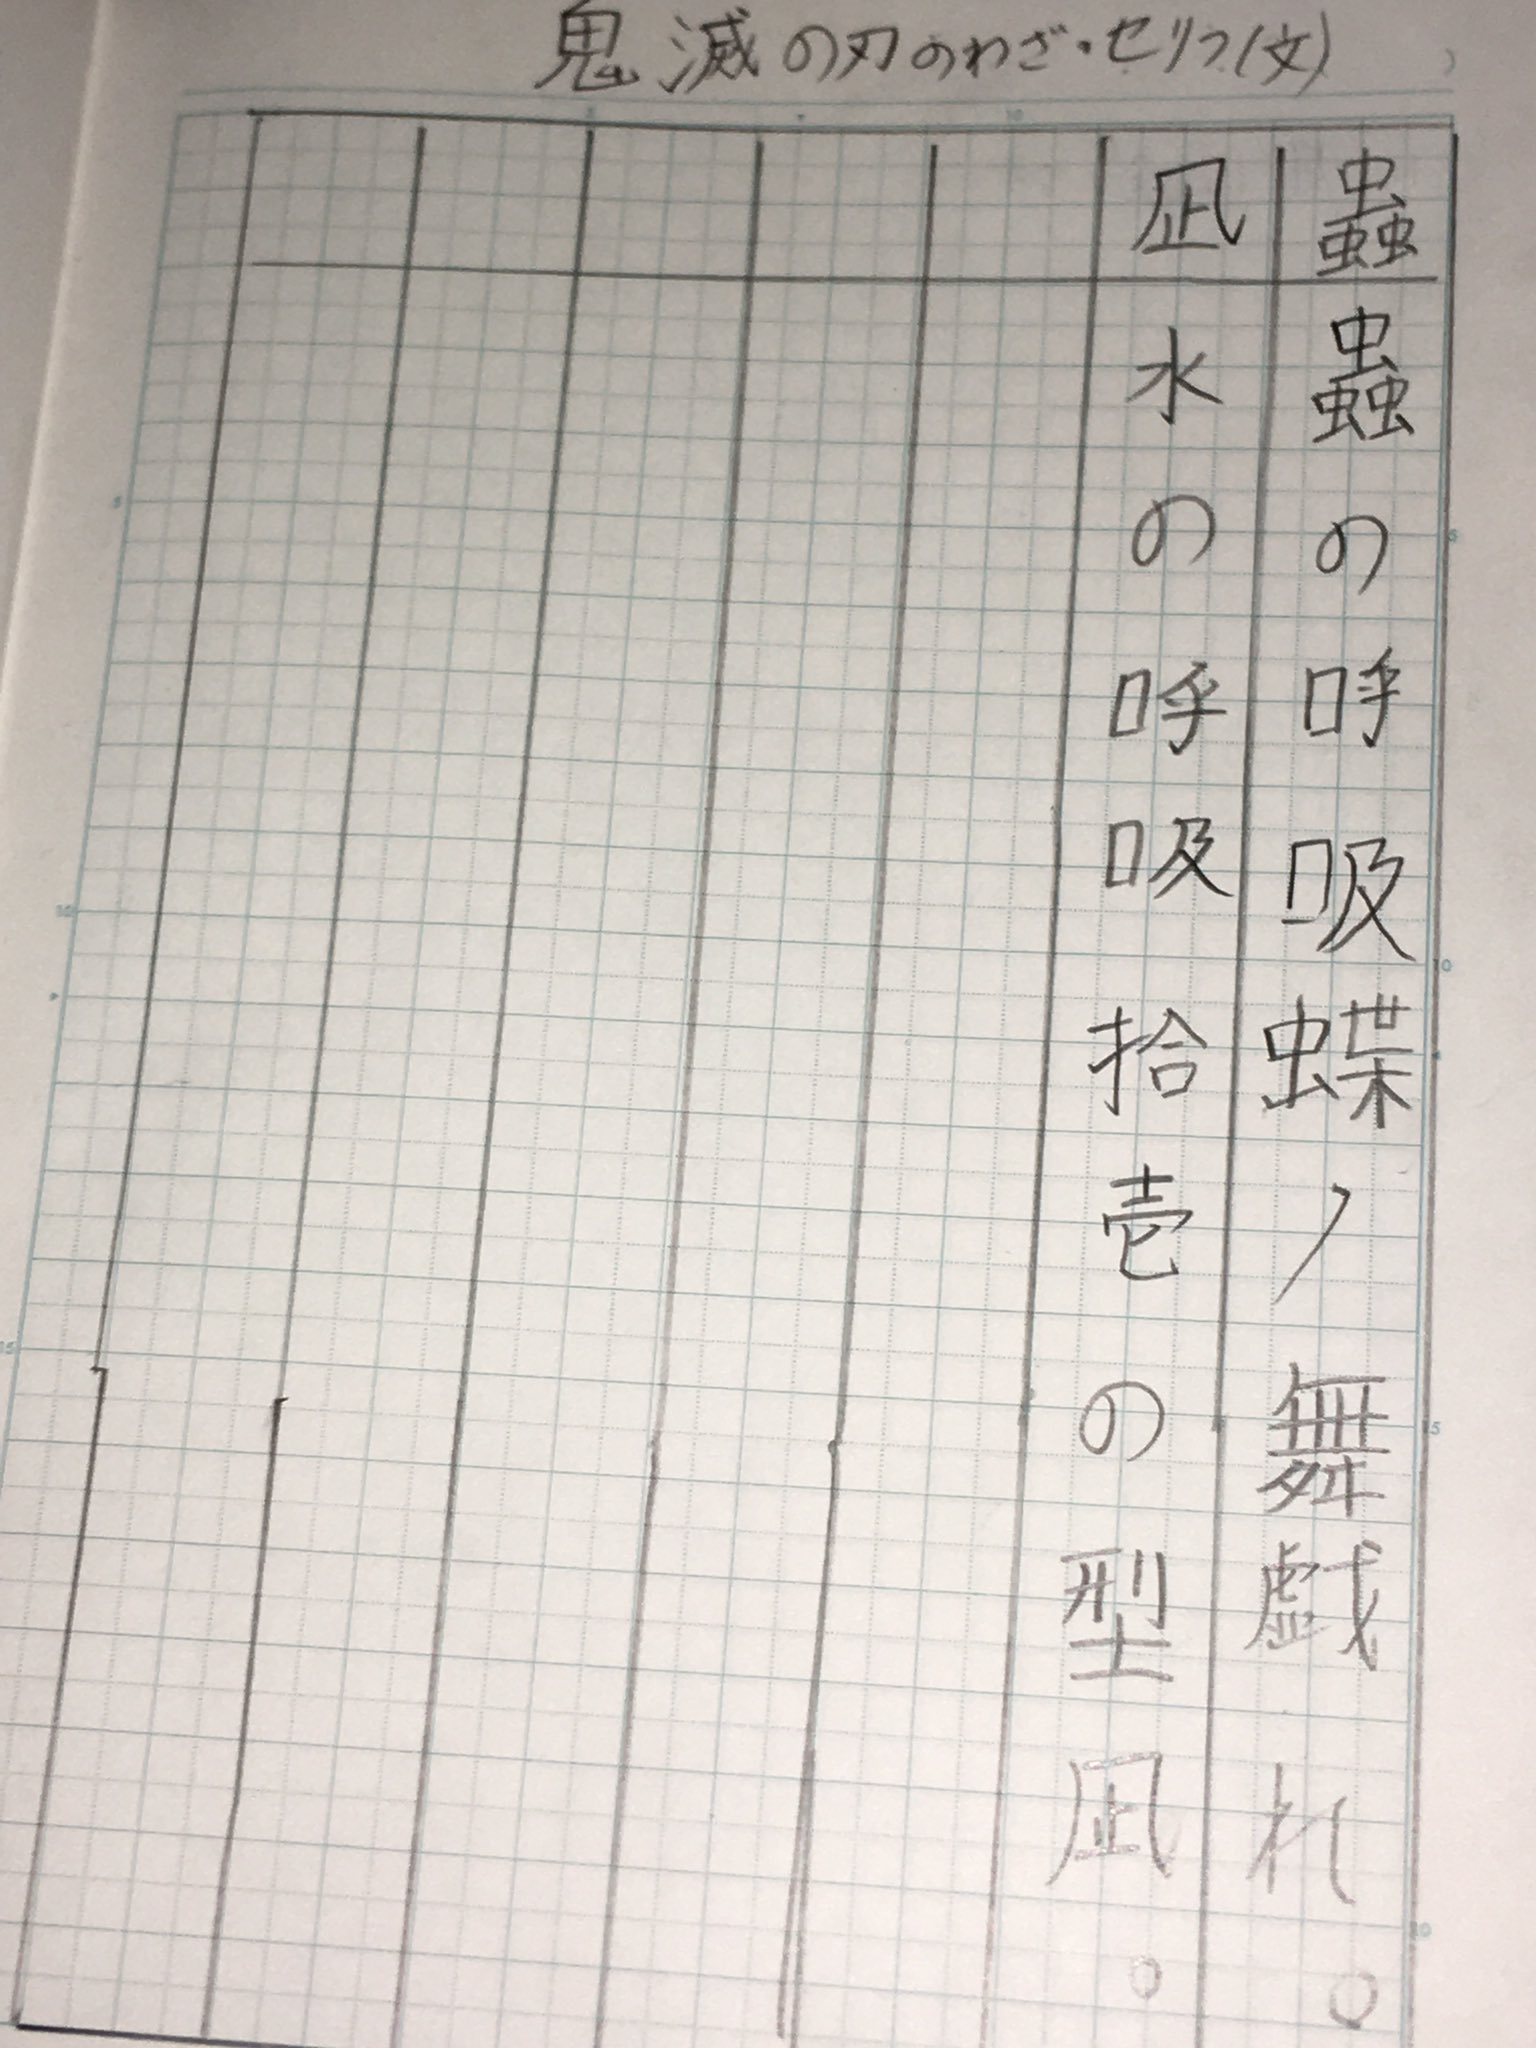 鬼滅の刃のわざ・セリフ(文)
蟲
蟲の呼吸蝶ノ舞戯れ。
凪
水の呼吸拾壱の型凪。